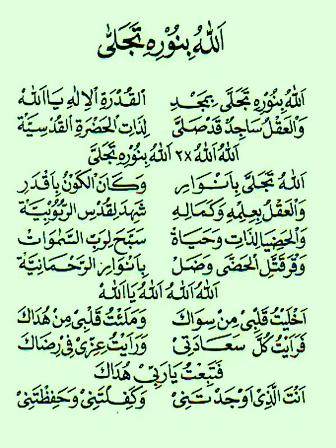 اَللهُ بِنُوْرِهِ تَجَلَّى
اَللهُ بِنُوْرِهِ تَجَلَّى بِمَجْدِ الْقُدْرَةِ الْإِلٰهِ يَا اَلله
وَالْعَقْلُ سَاجِدٌ قَدْ صَلَّى لِذَاتِ الْحَضْرَةِ الْقُدْسِيَّةْ
اَللهُ اَللهُ ×٢ اَللهُ بِنُوْرِهِ تَجَلَّى
اَللهُ تَجَلَّى بِاَنْوَارِ وَكَانَ الْكَوْنُ بِاَقْدَرِ
وَالْعَقْلُ بِعِلْمِهِ وَكَمَالِهِ شَهِدَ لِقُدْسِ الرُّبُوْبِيَّةْ
لِذَاتِ وَحَيَاةْ سَبَّحَ لِرَبِّ السَّمٰوَاتْ
وَصَلْ بِاَنْوَارِ الرَّحْمَانِيَّةْ
اَللهُ اَللهُ اَللهُ يَا اَللهُ
اَخْلَيْتُ قَلْبِيْ مِنْ سِوَاكَ وَمَلَئْتُ قَلْبِيْ مِنْ هُدَاكَ
فَرَأَيْتُ كُلَّ سَعَادَتِيْ وَرَاَيْتُ عِزِّيْ فِيْ رِضَاكَ
فَتَبِعْتُ يَارَبِّيْ هُدَاكَ
اَنْتَ الَّذِيْ اَوْجَدْتَنِيْ وَكَفِلْتَنِيْ وَحَفِظْتَنِيْ